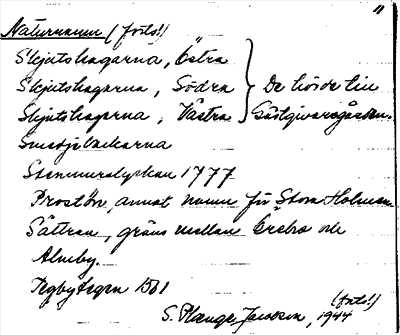 11
Naturnamn (forts!)
Skjutshagarna, Östra
Skjutshagarna, Södra } De hörde till
Skjutshagarna, Västra Gästgivaregården.
Smedjebackarna
Stenmurslyckan 1777
Prostön, annat namn för Stora Holmen
Sättran, gräns mellan Örebro och
Almby.
Tegbytegen 1561
(forts!)
S. Plænge Jacobson, 1944